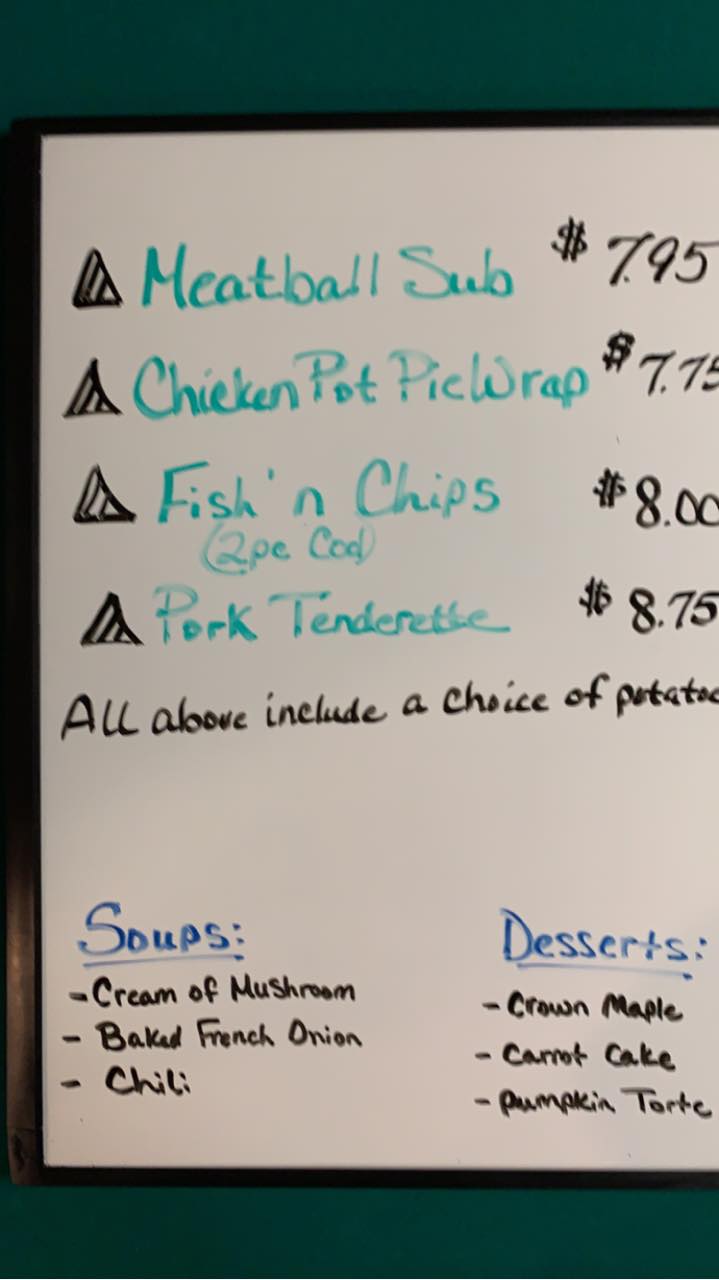 Meatball Sub $ 7.95
Chicken Pot Pie Wrap $ 7.75
Fish 'n Chips $ 8.00
(2pc Cod)
Pork Tenderette $ 8.75
All above include a choice of potatoe
Soups:
- Cream of Mushroom
- Baked French Onion
- Chili
Desserts:
- Crown Maple
- Carrot Cake
- Pumpkin Torte